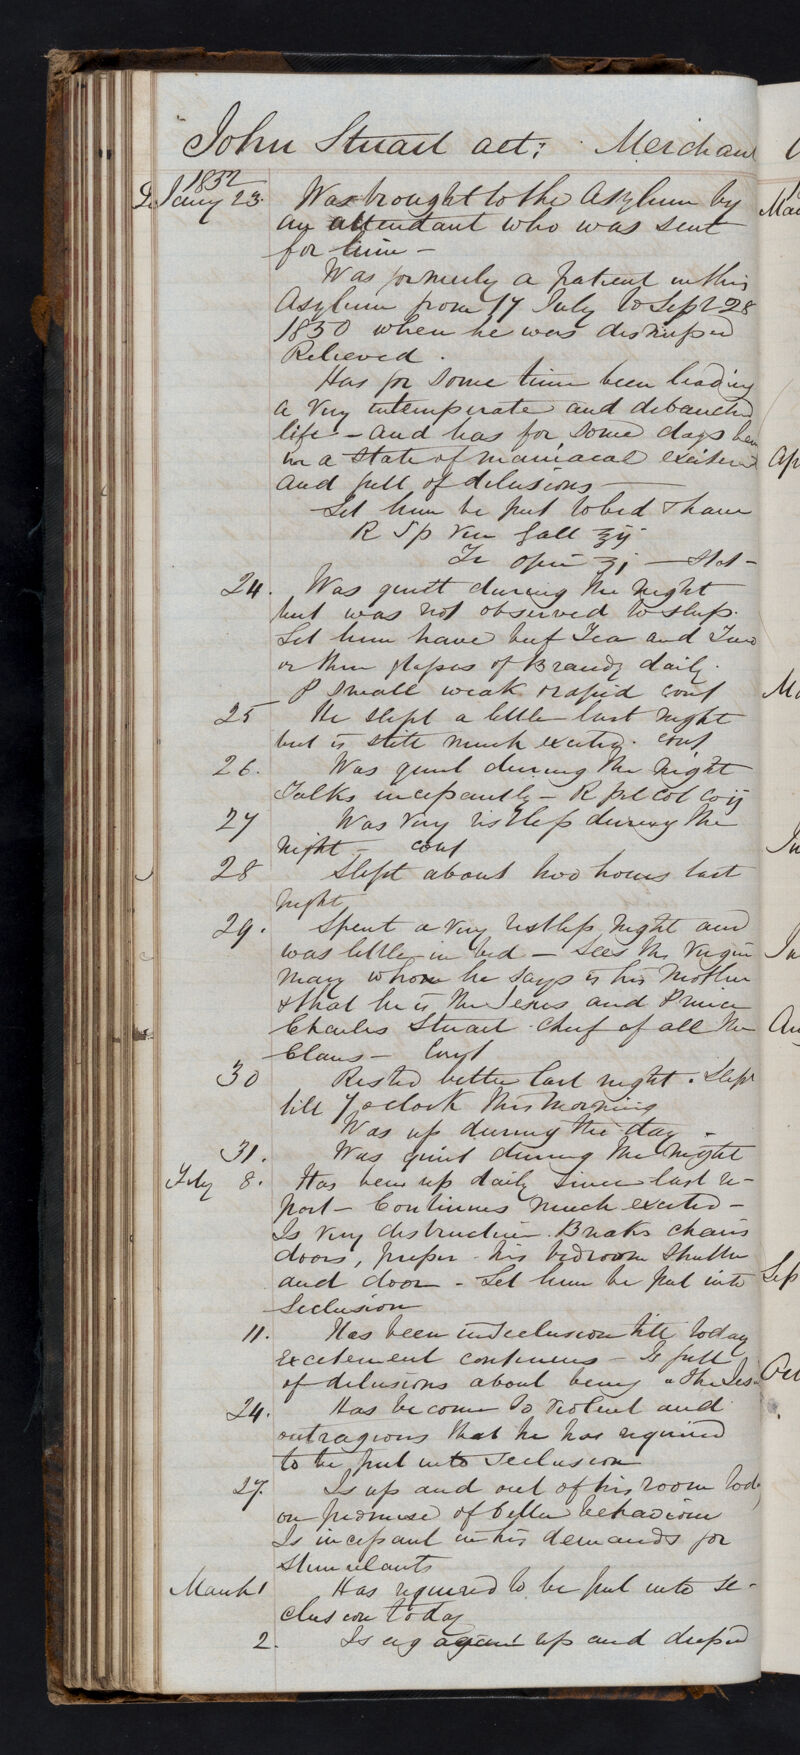 John Stuart aet: Merchant
1832
Jany 23. Was brought to the Asylum by
an attendant who was sent
for him –
Was formerly a patient in this
Asylum from 17 July to Sept 28
1830 when he was dismissed
Relieved.
Has for some time been leading
a very intemperate and debauched
life – and has for some days been
in a state of maniacal excitemt
and full of delusions –
Let him be put to bed & have
R Sp Vin Gall ℥ij
Tr opii ʒj – Stat –
24. Was quiet during the night
but was not observed to sleep.
Let him have beef Tea and Two
or three glasses of Brandy daily.
P small weak cont
25 He slept a little last night
but is still much excited. cont
26. Was quiet during the night
Talks incessantly – R pil Col Co ij
27 Was very restless during the
night – cont
28 Slept about two hours last
night
29. Spent a very restless night and
was little in bed – Sees the Virgin
Mary whom he says is his mother
& that he is the Jesus and Prince
Charles Stuart chief of all the
Clans – Cont
30 Rested better last night. Slept
till 7 oclock this morning
Was up during the day –
31. Was quiet during the night
Feby 8. Has been up daily since last re-
port – Continues much excited –
Is very destructive. Breaks chairs
doors, his bedroom shutter
and door – Let him be put into
Seclusion
11. Has been in seclusion till today
excitement continues – Is full
of delusions about being "the Jes
24. Has become so violent and
outrageous that he has required
to be put into seclusion
27. Is up and out of his room tod
on promise of better behaviour
Is incessant in his demands for
stimulants
March 1 Has required to be put into se-
clusion today
2. Is ag again up and dressed
Mar
Ap
Ma
Ju
Ju
Au
Sep
Oct